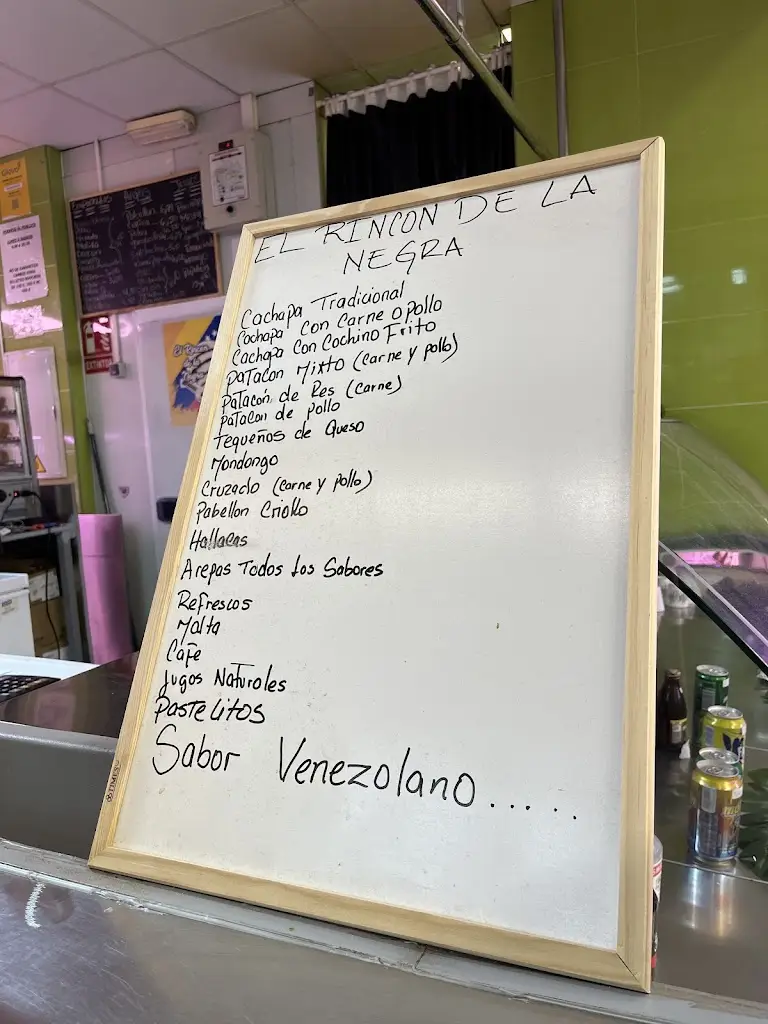 EL RINCON DE LA
NEGRA
Cachapa Tradicional
Cachapa con Carne o pollo
Cachapa Con Cochino Frito
PaTacon Mixto (carne y pollo)
PaTacon de Res (carne)
PaTacon de pollo
Tequeños de Queso
Mondongo
Cruzado (carne y pollo)
Pabellon Criollo
Hallacas
Arepas Todos Los Sabores
Refrescos
Malta
Cafe
Jugos Naturales
PasteLitos
Sabor Venezolano......
EXTINTOR
Glovo